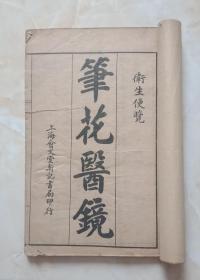 衛生便覽
筆花醫鏡
上海會文堂新記書局印行